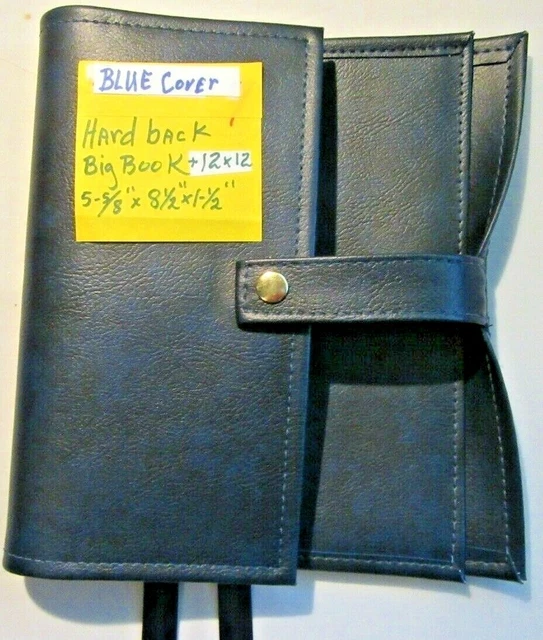 BLUE Cover
Hard back
Big Book +12x12
5-5/8" x 8½" x 1-½"